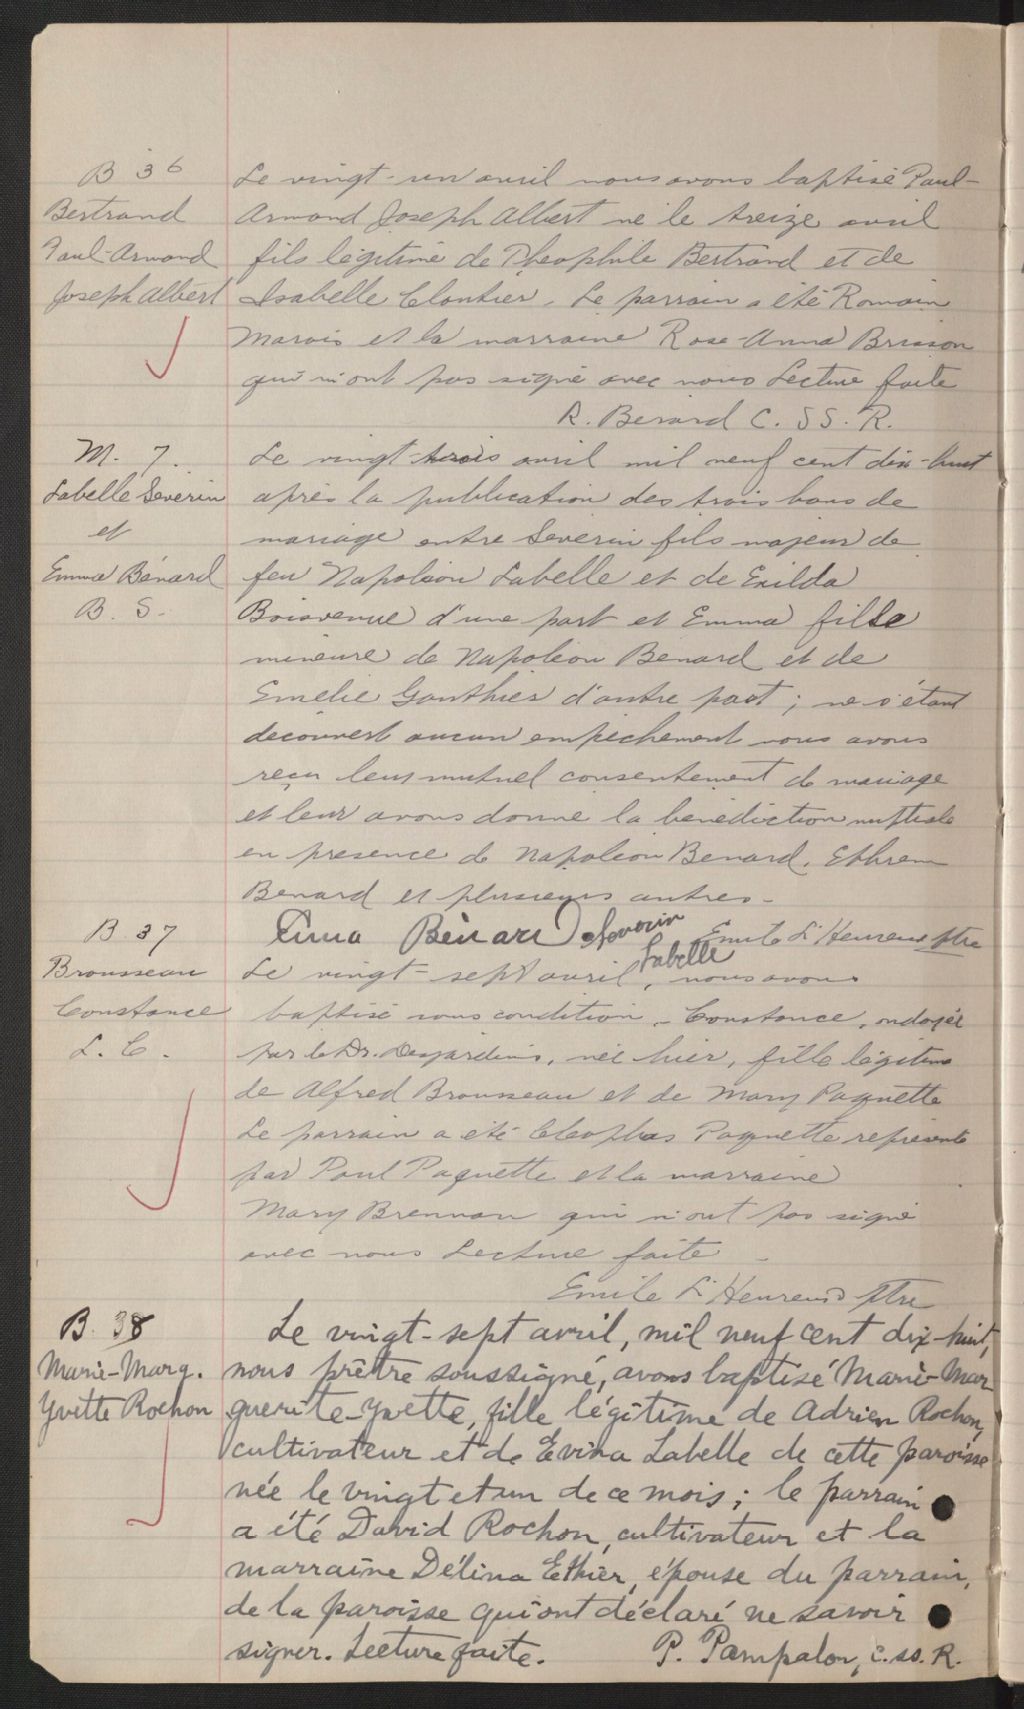 B 36
Bertrand
Paul-Armand
Joseph Albert
Le vingt-un avril nous avons baptisé Paul-
Armand Joseph Albert né le treize avril
fils légitime de Théophile Bertrand et de
Isabelle Cloutier. Le parrain a été Romain
Marois et la marraine Rose-Anna Brisson
qui n'ont pas signé avec nous Lecture faite
R. Berard C. SS. R.
M. 7.
Labelle Severin
et
Emma Bénard
B. S.
Le vingt-trois avril mil neuf cent dix-huit
après la publication des trois bans de
mariage entre Severin fils majeur de
feu Napoléon Labelle et de Exilda
Boisvenue d'une part et Emma fille
mineure de Napoléon Benard et de
Emelie Gauthier d'autre part ; ne s'étant
découvert aucun empêchement nous avons
reçu leur mutuel consentement de mariage
et leur avons donné la bénédiction nuptiale
en presence de Napoleon Benard, Ephrem
Benard et plusieurs autres -
Emma Bénard Severin Labelle Emile L'Heureux ptre
B 37
Brousseau
Constance
L. C.
Le vingt-sept avril, nous avons
baptisé sous condition - Constance, ondoyée
par le Dr. Desjardins, née hier, fille légitime
de Alfred Brousseau et de Mary Paquette
Le parrain a été Cleophas Paquette représenté
par Paul Paquette et la marraine
Mary Brennan qui n'ont pas signé
avec nous Lecture faite -
Emile L'Heureux ptre
B. 38
Marie-Marg.
Yvette Rochon
Le vingt-sept avril, mil neuf cent dix-huit,
nous prêtre soussigné, avons baptisé Marie-Mar
guerite-Yvette, fille légitime de Adrien Rochon,
cultivateur et de Evina Labelle de cette paroisse
née le vingt et un de ce mois ; le parrain
a été David Rochon, cultivateur et la
marraine Délina Ethier, épouse du parrain,
de la paroisse qui ont déclaré ne savoir
signer. Lecture faite. P. Pampalon, C.ss.R.